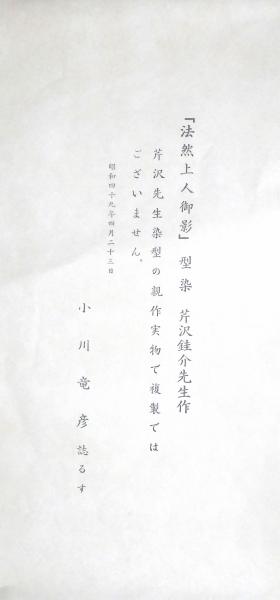 『法然上人御影』型染 芹沢銈介先生作
芹沢先生染型の親作実物で複製では
ございません。
昭和四十九年四月二十三日
小川竜彦誌るす